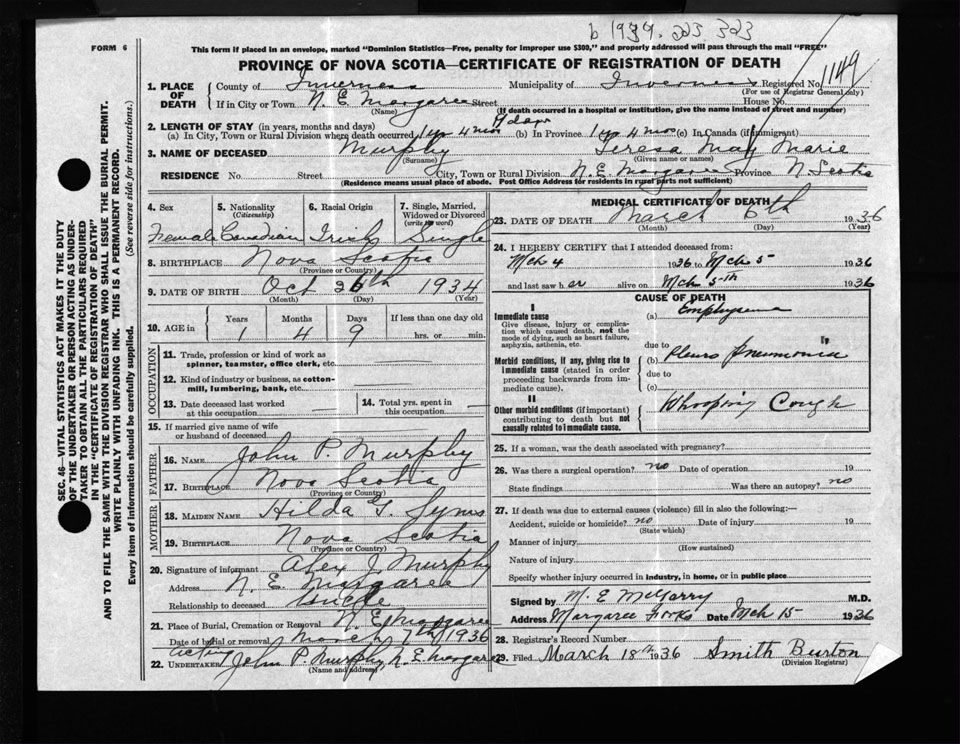 b 1937. 223. 323
FORM 6
This form if placed in an envelope, marked "Dominion Statistics—Free, penalty for improper use $300," and properly addressed will pass through the mail "FREE"
PROVINCE OF NOVA SCOTIA—CERTIFICATE OF REGISTRATION OF DEATH
1149
1. PLACE OF DEATH County of Inverness Municipality of Inverness Registered No.
(For use of Registrar General only)
If in City or Town N. E. Margaree Street House No.
(Name) (If death occurred in a hospital or institution, give the name instead of street and number)
2. LENGTH OF STAY (in years, months and days) 9 days
(a) In City, Town or Rural Division where death occurred 1 yr 4 mos (b) In Province 1 yr 4 mos (c) In Canada (if immigrant)
3. NAME OF DECEASED Murphy Teresa May Marie
(Surname) (Given name or names)
RESIDENCE No. Street City, Town or Rural Division N. E. Margaree Province N. Scotia
(Residence means usual place of abode. Post Office Address for residents in rural parts not sufficient)
4. Sex 5. Nationality (Citizenship) 6. Racial Origin 7. Single, Married, Widowed or Divorced (write the word)
Female Canadian Irish Single
8. BIRTHPLACE Nova Scotia
(Province or Country)
9. DATE OF BIRTH Oct 26th 1934
(Month) (Day) (Year)
10. AGE in Years Months Days If less than one day old
1 4 9 hrs. or min.
OCCUPATION
11. Trade, profession or kind of work as spinner, teamster, office clerk, etc.
12. Kind of industry or business, as cotton-mill, lumbering, bank, etc.
13. Date deceased last worked at this occupation 14. Total yrs. spent in this occupation
15. If married give name of wife or husband of deceased
FATHER
16. NAME John P. Murphy
17. BIRTHPLACE Nova Scotia
(Province or Country)
MOTHER
18. MAIDEN NAME Hilda G. Syms
19. BIRTHPLACE Nova Scotia
(Province or Country)
20. Signature of informant Alex J Murphy
Address N. E. Margaree
Relationship to deceased Uncle
21. Place of Burial, Cremation or Removal N. E. Margaree
Date of burial or removal March 7th 1936
acting
22. UNDERTAKER John P. Murphy N. E. Margaree
(Name and address)
MEDICAL CERTIFICATE OF DEATH
23. DATE OF DEATH March 6th 1936
(Month) (Day) (Year)
24. I HEREBY CERTIFY that I attended deceased from:
Mch 4 1936 to Mch 5 1936
and last saw her alive on Mch 5th 1936
CAUSE OF DEATH
I
Immediate cause (a) Emphysema
Give disease, injury or complication which caused death, not the mode of dying, such as heart failure, asphyxia, asthenia, etc.
due to
Morbid conditions, if any, giving rise to immediate cause (stated in order proceeding backwards from immediate cause). (b) Pleuro Pneumonia
due to
(c)
II
Other morbid conditions (if important) contributing to death but not causally related to immediate cause. Whooping Cough
25. If a woman, was the death associated with pregnancy?
26. Was there a surgical operation? no Date of operation 19
State findings Was there an autopsy? no
27. If death was due to external causes (violence) fill in also the following:—
Accident, suicide or homicide? no Date of injury 19
(State which)
Manner of injury
(How sustained)
Nature of injury
Specify whether injury occurred in industry, in home, or in public place
Signed by M. E. McGarry M.D.
Address Margaree Forks Date Mch 15 1936
28. Registrar's Record Number
29. Filed March 18th 1936 Smith Burton
(Division Registrar)
SEC. 46—VITAL STATISTICS ACT MAKES IT THE DUTY
OF THE UNDERTAKER OR PERSON ACTING AS UNDER-
TAKER TO OBTAIN ALL THE PARTICULARS REQUIRED
IN THE "CERTIFICATE OF REGISTRATION OF DEATH"
AND TO FILE THE SAME WITH THE DIVISION REGISTRAR WHO SHALL ISSUE THE BURIAL PERMIT.
WRITE PLAINLY WITH UNFADING INK. THIS IS A PERMANENT RECORD.
Every item of information should be carefully supplied. (See reverse side for instructions.)